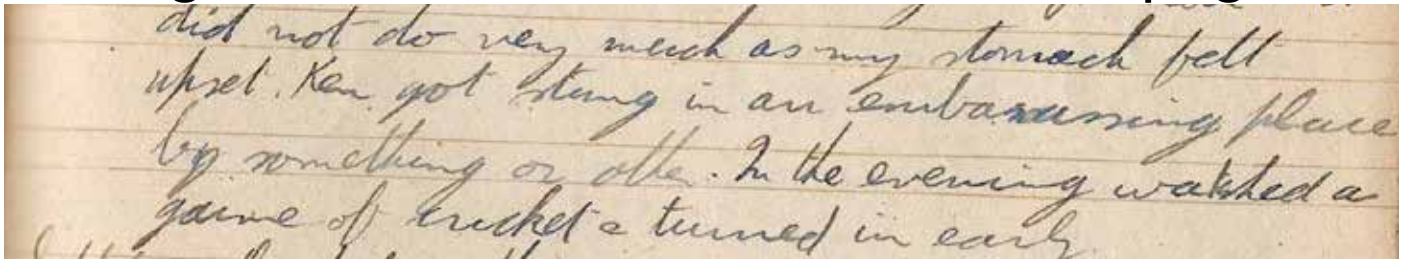 did not do very much as my stomach felt
upset. Ken got stung in an embarrassing place
by something or other. In the evening watched a
game of cricket & turned in early.